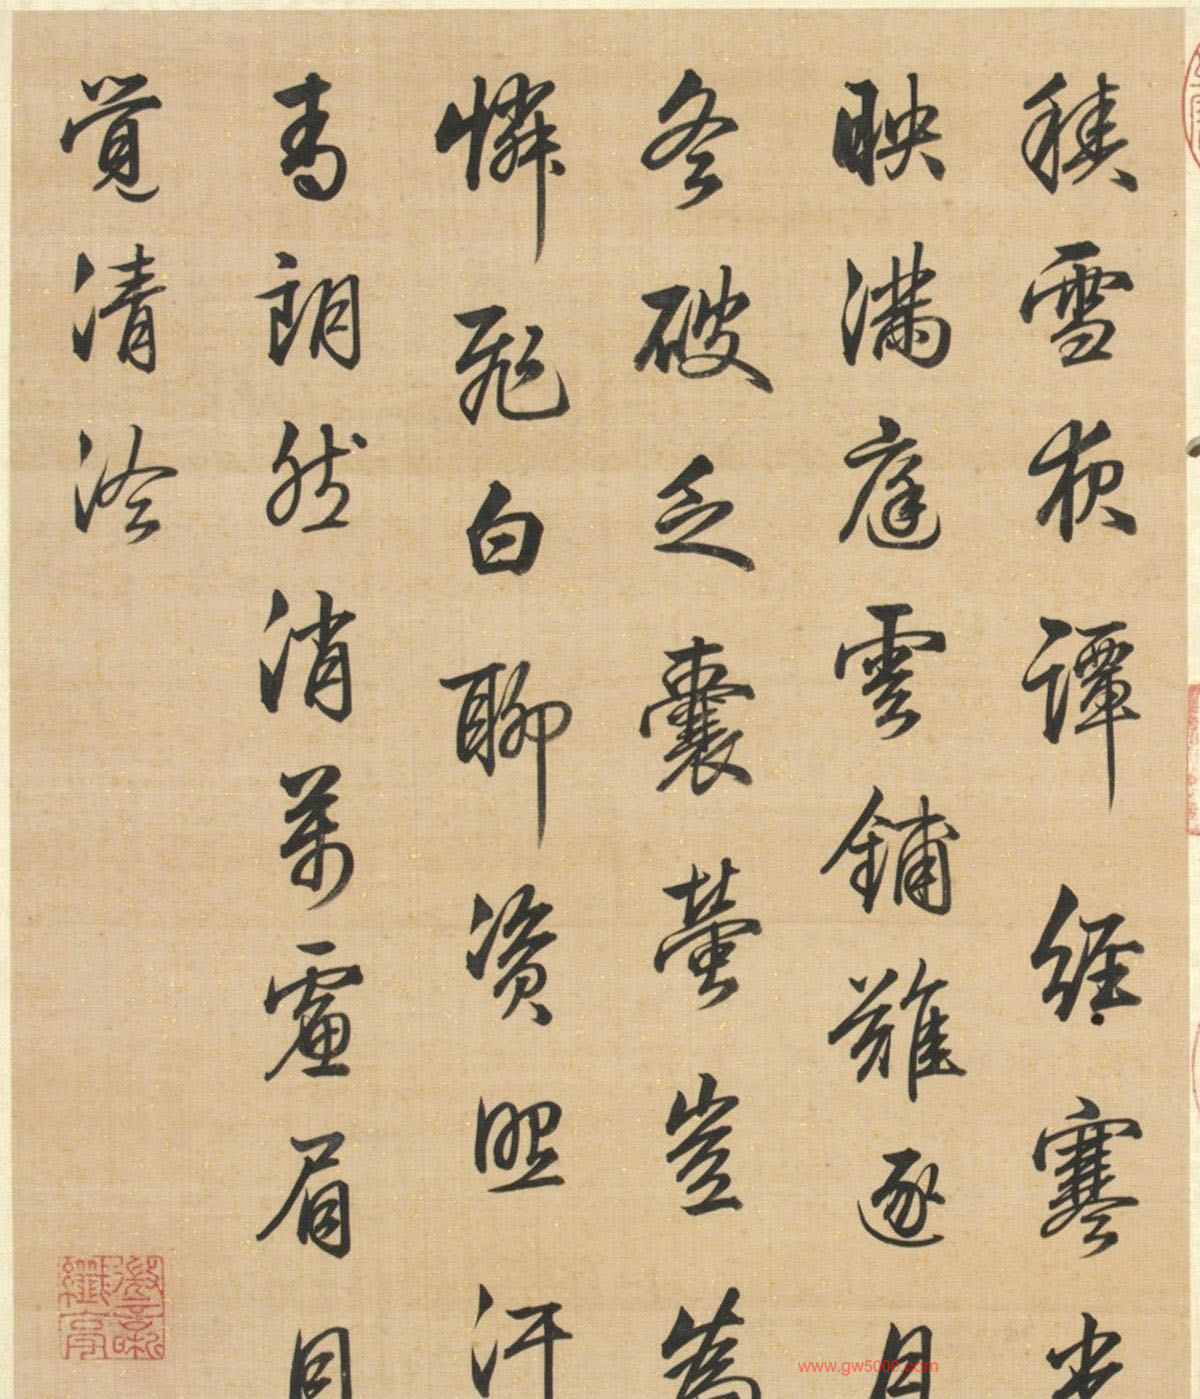 積雪夜譚經寒光
映滿庭雲鋪難逐月
冬破乏囊螢豈為
憐飛白聊資照汗
青朗然消萬慮眉目
覺清泠
www.gw5000.com